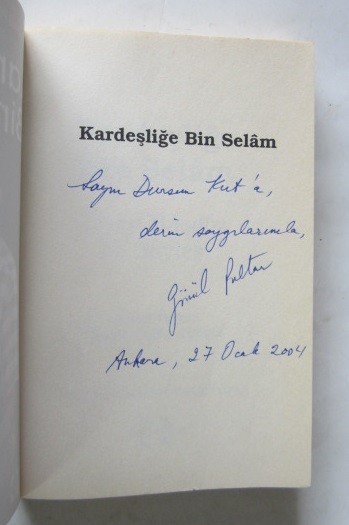 Kardeşliğe Bin Selâm
Sayın Dursun Kut'a,
derin saygılarımla,
Gönül Pultar
Ankara, 27 Ocak 2004